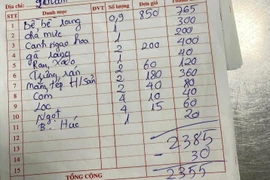 Địa chỉ:
STT Danh mục ĐVT Số lượng Đơn giá Thành tiền
1 Bề bề rang 0,9 850 765
2 chả mực 1 300
3 Canh ngao hoa 1 200
4 gà rang 2 200 400
5 Rau xào 1 40
6 Trứng rán 2 60 120
7 mắm tép H/Sản 2 180 360
8 Cơm 2 40 80
9 Lọc 4 10 40
10 Ngọt 4 15 60
11 B. Húc 1 20
12
13 2385
14 30
15 2355
TỔNG CỘNG